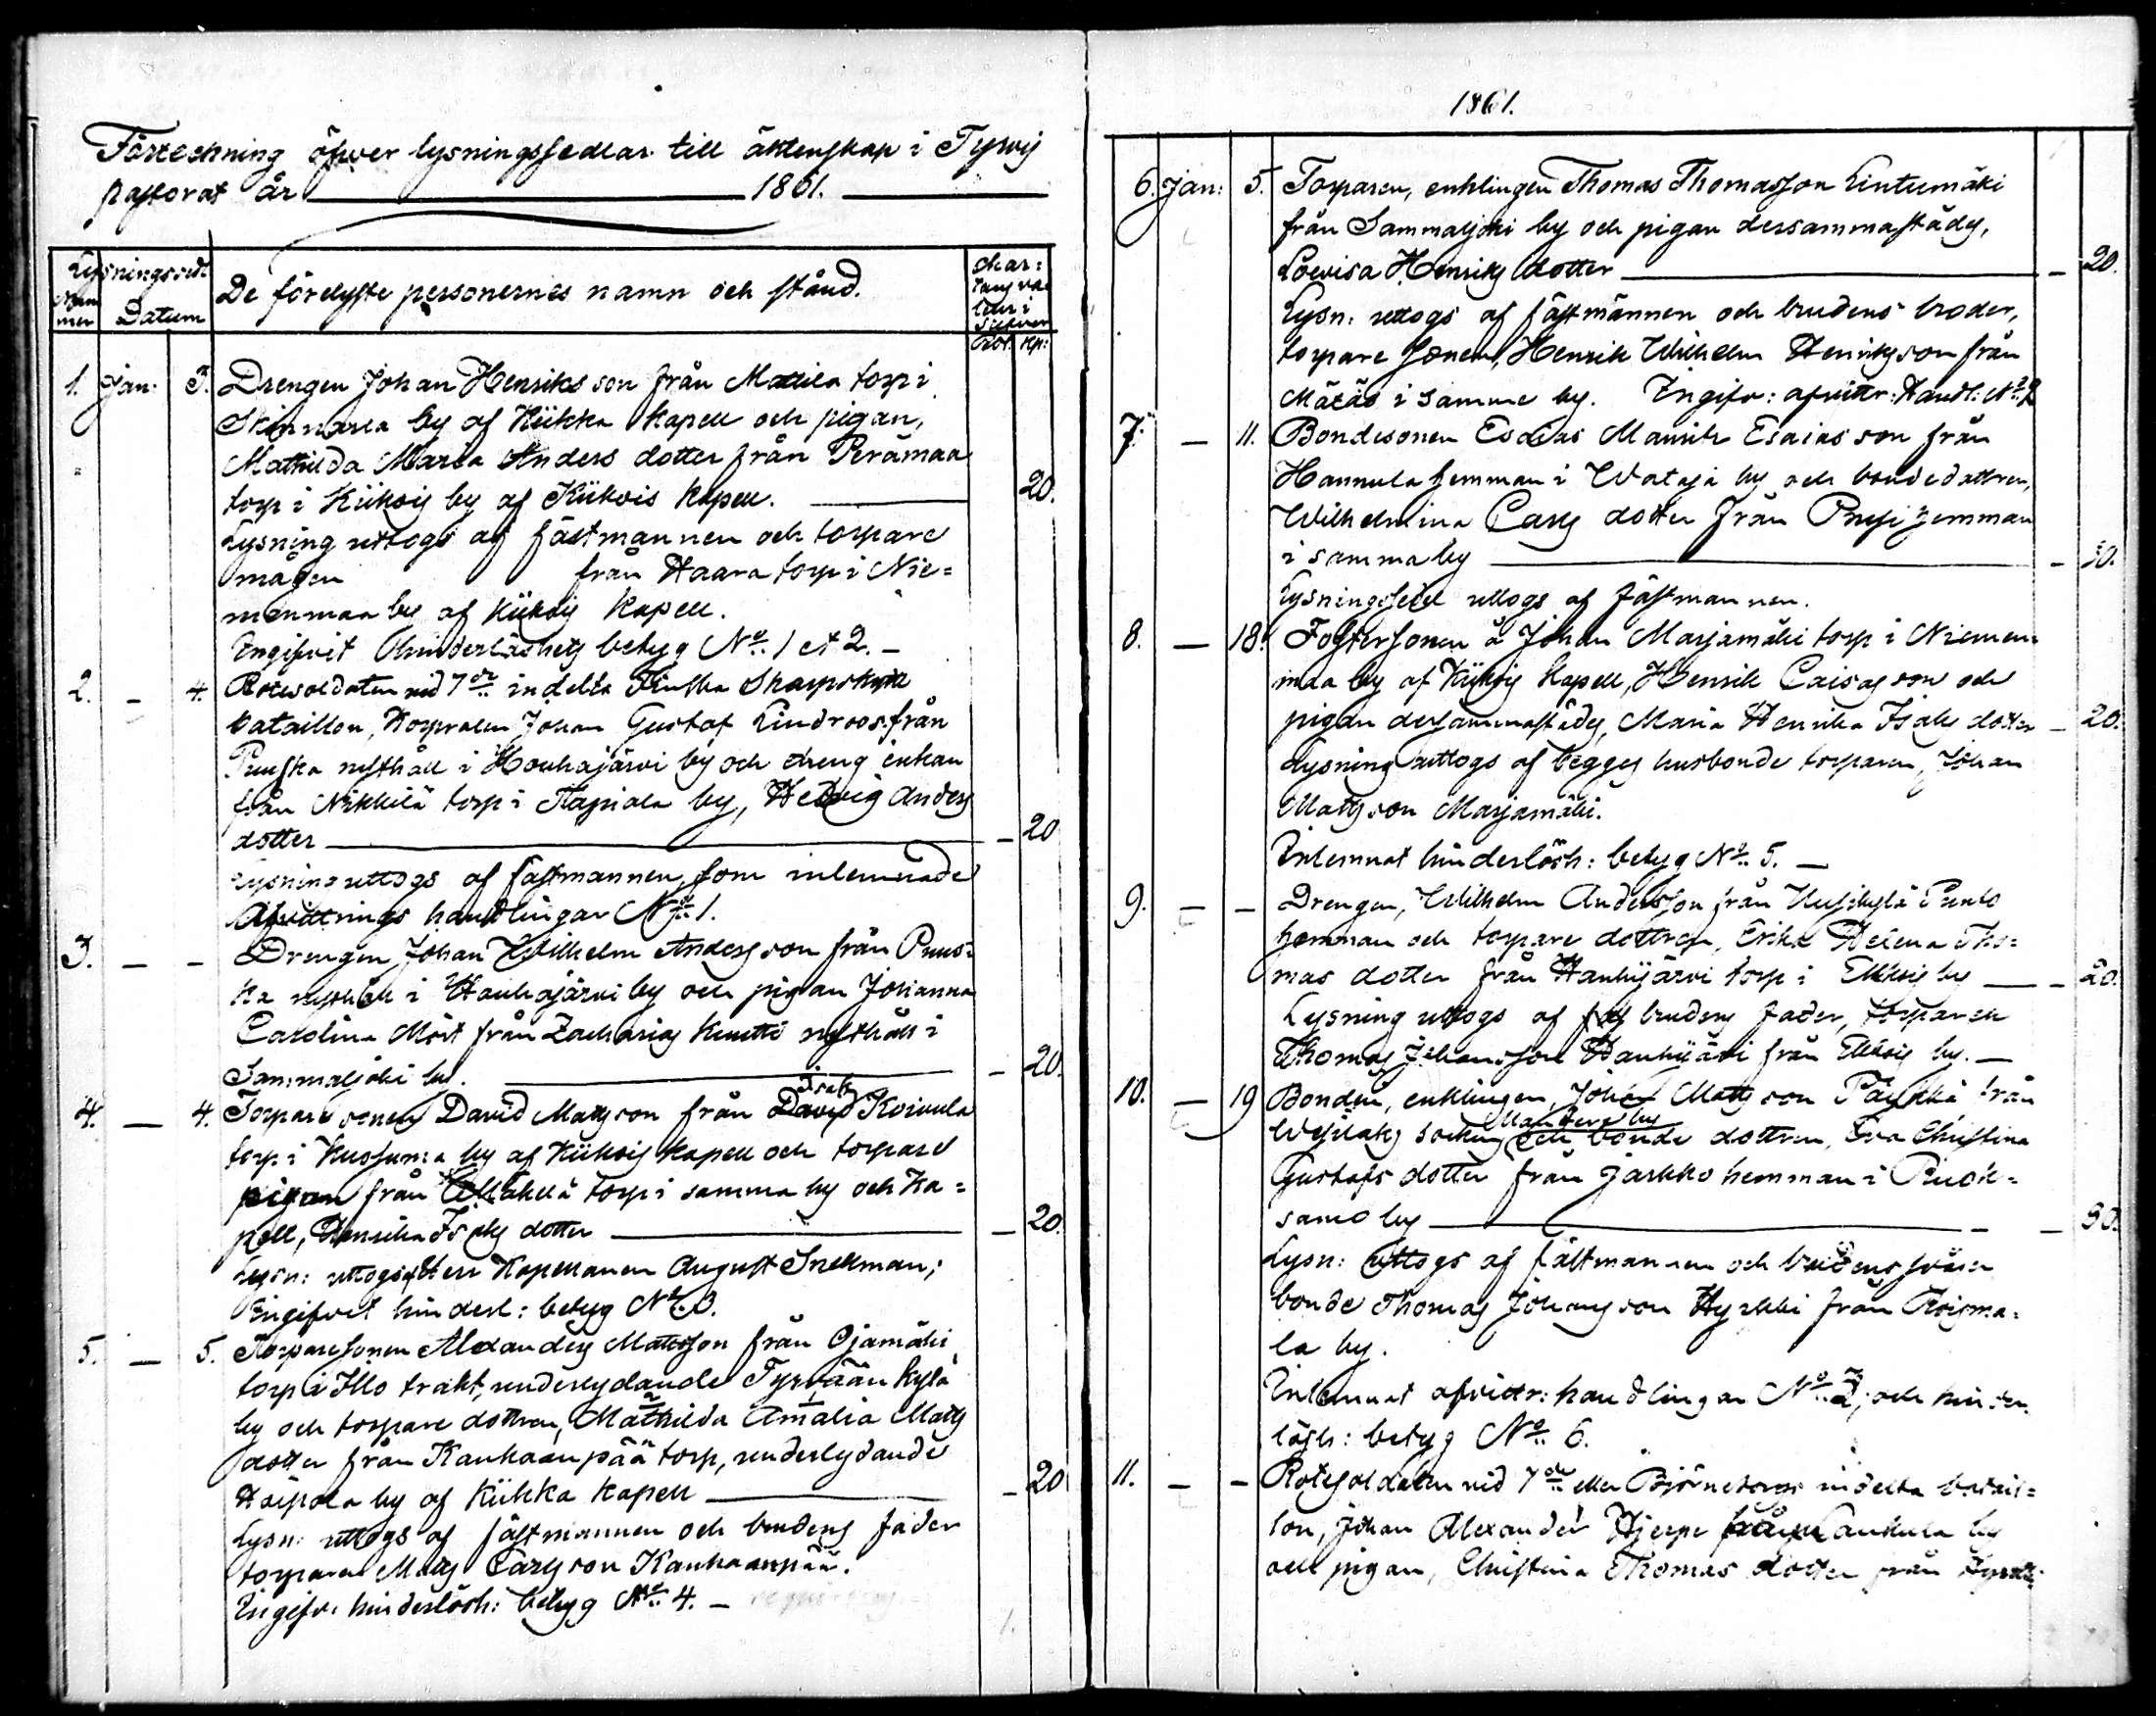 Förteckning öfwer lysningssedlar till äktenskap i Tyrvis
pastorat år 1861.
Lysningssedl.
Num
mer
Datum
De förelyste personernes namn och stånd.
char:
Rbl. Kp:
1. Jan: 3. Drengen Johan Henriksson från Mattila torp i
Skinnarla by af Kiikka kapell och pigan,
Mathilda Maria Anders dotter från Perämaa
torp i Kiikois by af Kiikois kapell. 20.
Lysning uttogs af fästmannen och torpare
mågen från Haara torp i Nie=
menmaa by af Kiikois Kapell.
Ingifvit Hinderlöshets betyg No. 1 et 2. –
2. – 4. Rotesoldaten vid 7de indelta Finska Skarpskytte
bataillon, Korpralen Johan Gustaf Lindroos från
Puuska rusthåll i Houhajärvi by och dreng enkan
från Nikkilä torp i Kapiala by, Hedvig Anders
dotter – 20
Lysning uttogs af fästmannen, som inlemnade
Afvittrings handlingar No. 1.
3. – – Drengen Johan Wilhelm Andersson från Puus=
ka rusthåll i Houhajärvi by och pigan Johanna
Carolina Mört från Zacharias Knutti rusthåll i
Sammaljoki by. – 20.
4. – 4. Torpare sonen David Mattsson från David Koivula
Isak
torp i Kuosuma by af Kiikois kapell och torpare
pigan från Alimäkelä torp i samma by och Ka=
pell, Henrika Isaks dotter – 20.
Lysn: uttogs af Herr Kapellanen August Snellman;
Ingifvit hinderl: betyg No. 3.
5. – 5. Torparesonen Alexanders Mattsson från Ojamäki
torp i Illo trakt, underlydande Tyrvään kylä
by och torpare dottren, Mathilda Amalia Matts
dotter från Kankaanpää torp, underlydande
Haapola by af Kiikka Kapell – 20
Lysn: uttogs af fästmannen och brudens fader
torparen Matts Carlsson Kankaanpää.
Ingifv: hinderlösh: betyg No. 4. –
1861.
6. Jan: 5. Torparen, enklingen Thomas Thomasson Lintumäki
från Sammaljoki by och pigan dersammastädes,
Lovisa Henriks dotter – 20.
Lysn: uttogs af fästmannen och brudens broder,
torpare sonen, Henrik Wilhelm Henriksson från
Mätäs i samme by. Ingifv: afvittr: Handl: No. 2
7. – 11. Bondesonen Esaias Manuel Esaiasson från
Hannula hemman i Wataja by och bondedottren,
Wilhelmina Carls dotter från Pussi hemman
i samma by – 30.
Lysningssedel uttogs af fästmannen.
8. – 18. Fostersonen å Johan Marjamäki torp i Niemen=
maa by af Kiikois Kapell, Henrik Caisasson och
pigan dersammastädes, Maria Henrika Isaks dotter – 20.
Lysning uttogs af begges husbonde torparen, Johan
Mattsson Marjamäki.
Inlemnat hinderlösh: betyg No. 5. –
9. – – Drengen, Wilhelm Andersson från Punto
hemman och torpare dottren, Erika Helena Tho=
mas dotter från Hanhijärvi torp i Ekkois by – 20.
Lysning uttogs af brudens fader, torparen
Thomas Johansson Hanhijärvi från Ekkois by. –
10. – 19 Bonden, enklingen, Johan Mattsson från
Wesilaks socken och bonde dottren, Eva Christina
Gustafs dotter från Jaskko hemman i Ruok=
samo by – 30.
Lysn: uttogs af fästmannen och brudens svåger
bonde Thomas Johansson Hyrkki från Roisma=
la by.
Inlemnat afvittr: handlingar No. 3; och hinder=
lösh: betyg No. 6.
11. – – Rotesoldaten vid 7de eller Björneborgs indelta batail=
lon, Johan Alexander Hjerpe från Laukula by
och pigan, Christina Thomas dotter från